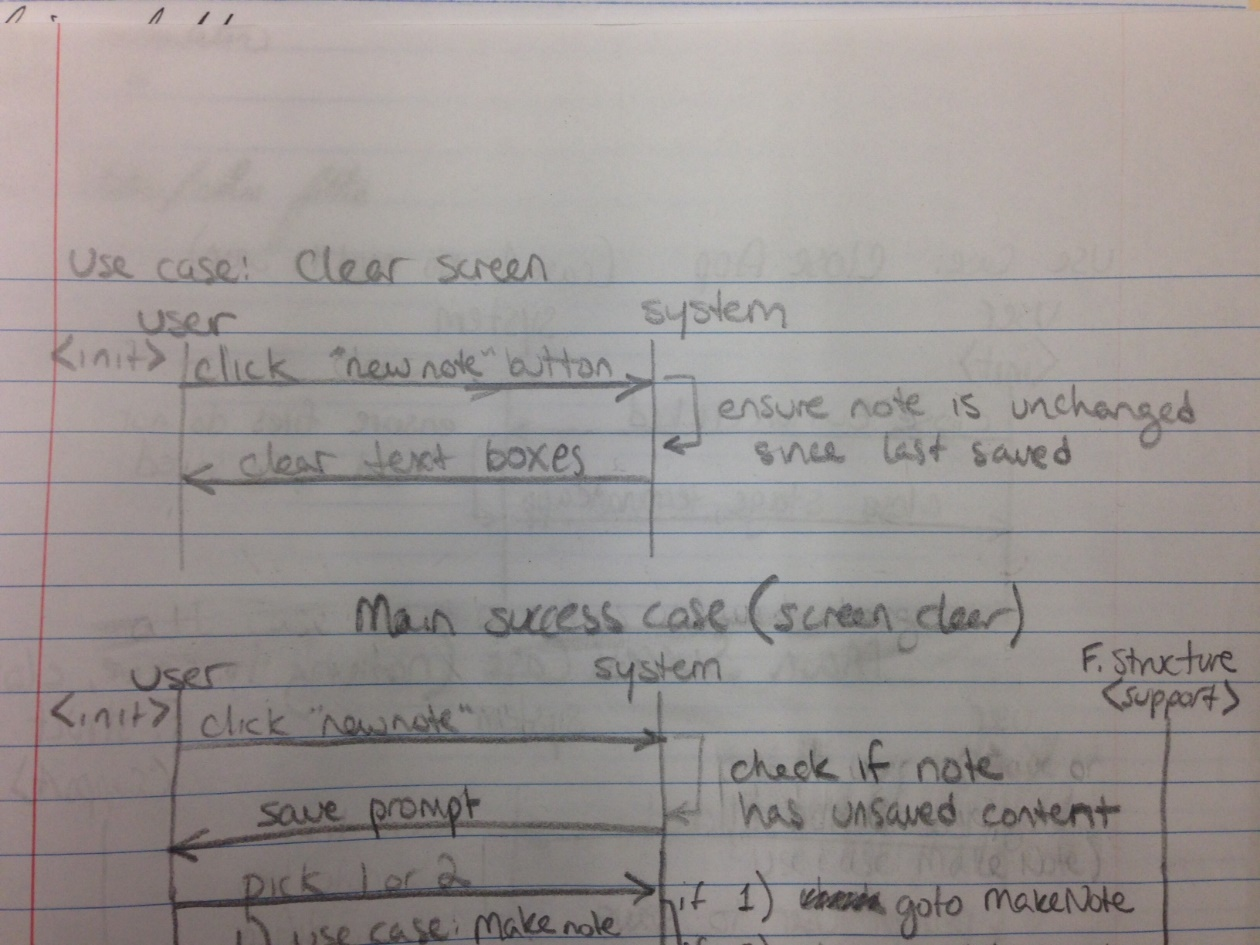 Use case: Clear screen
user system
<init> click "new note" button
ensure note is unchanged
since last saved
clear text boxes
Main success case (screen clear)
user system F. Structure
<init> <support>
click "new note"
check if note
has unsaved content
save prompt
pick 1 or 2
if 1) goto makeNote
1) use case: Make note